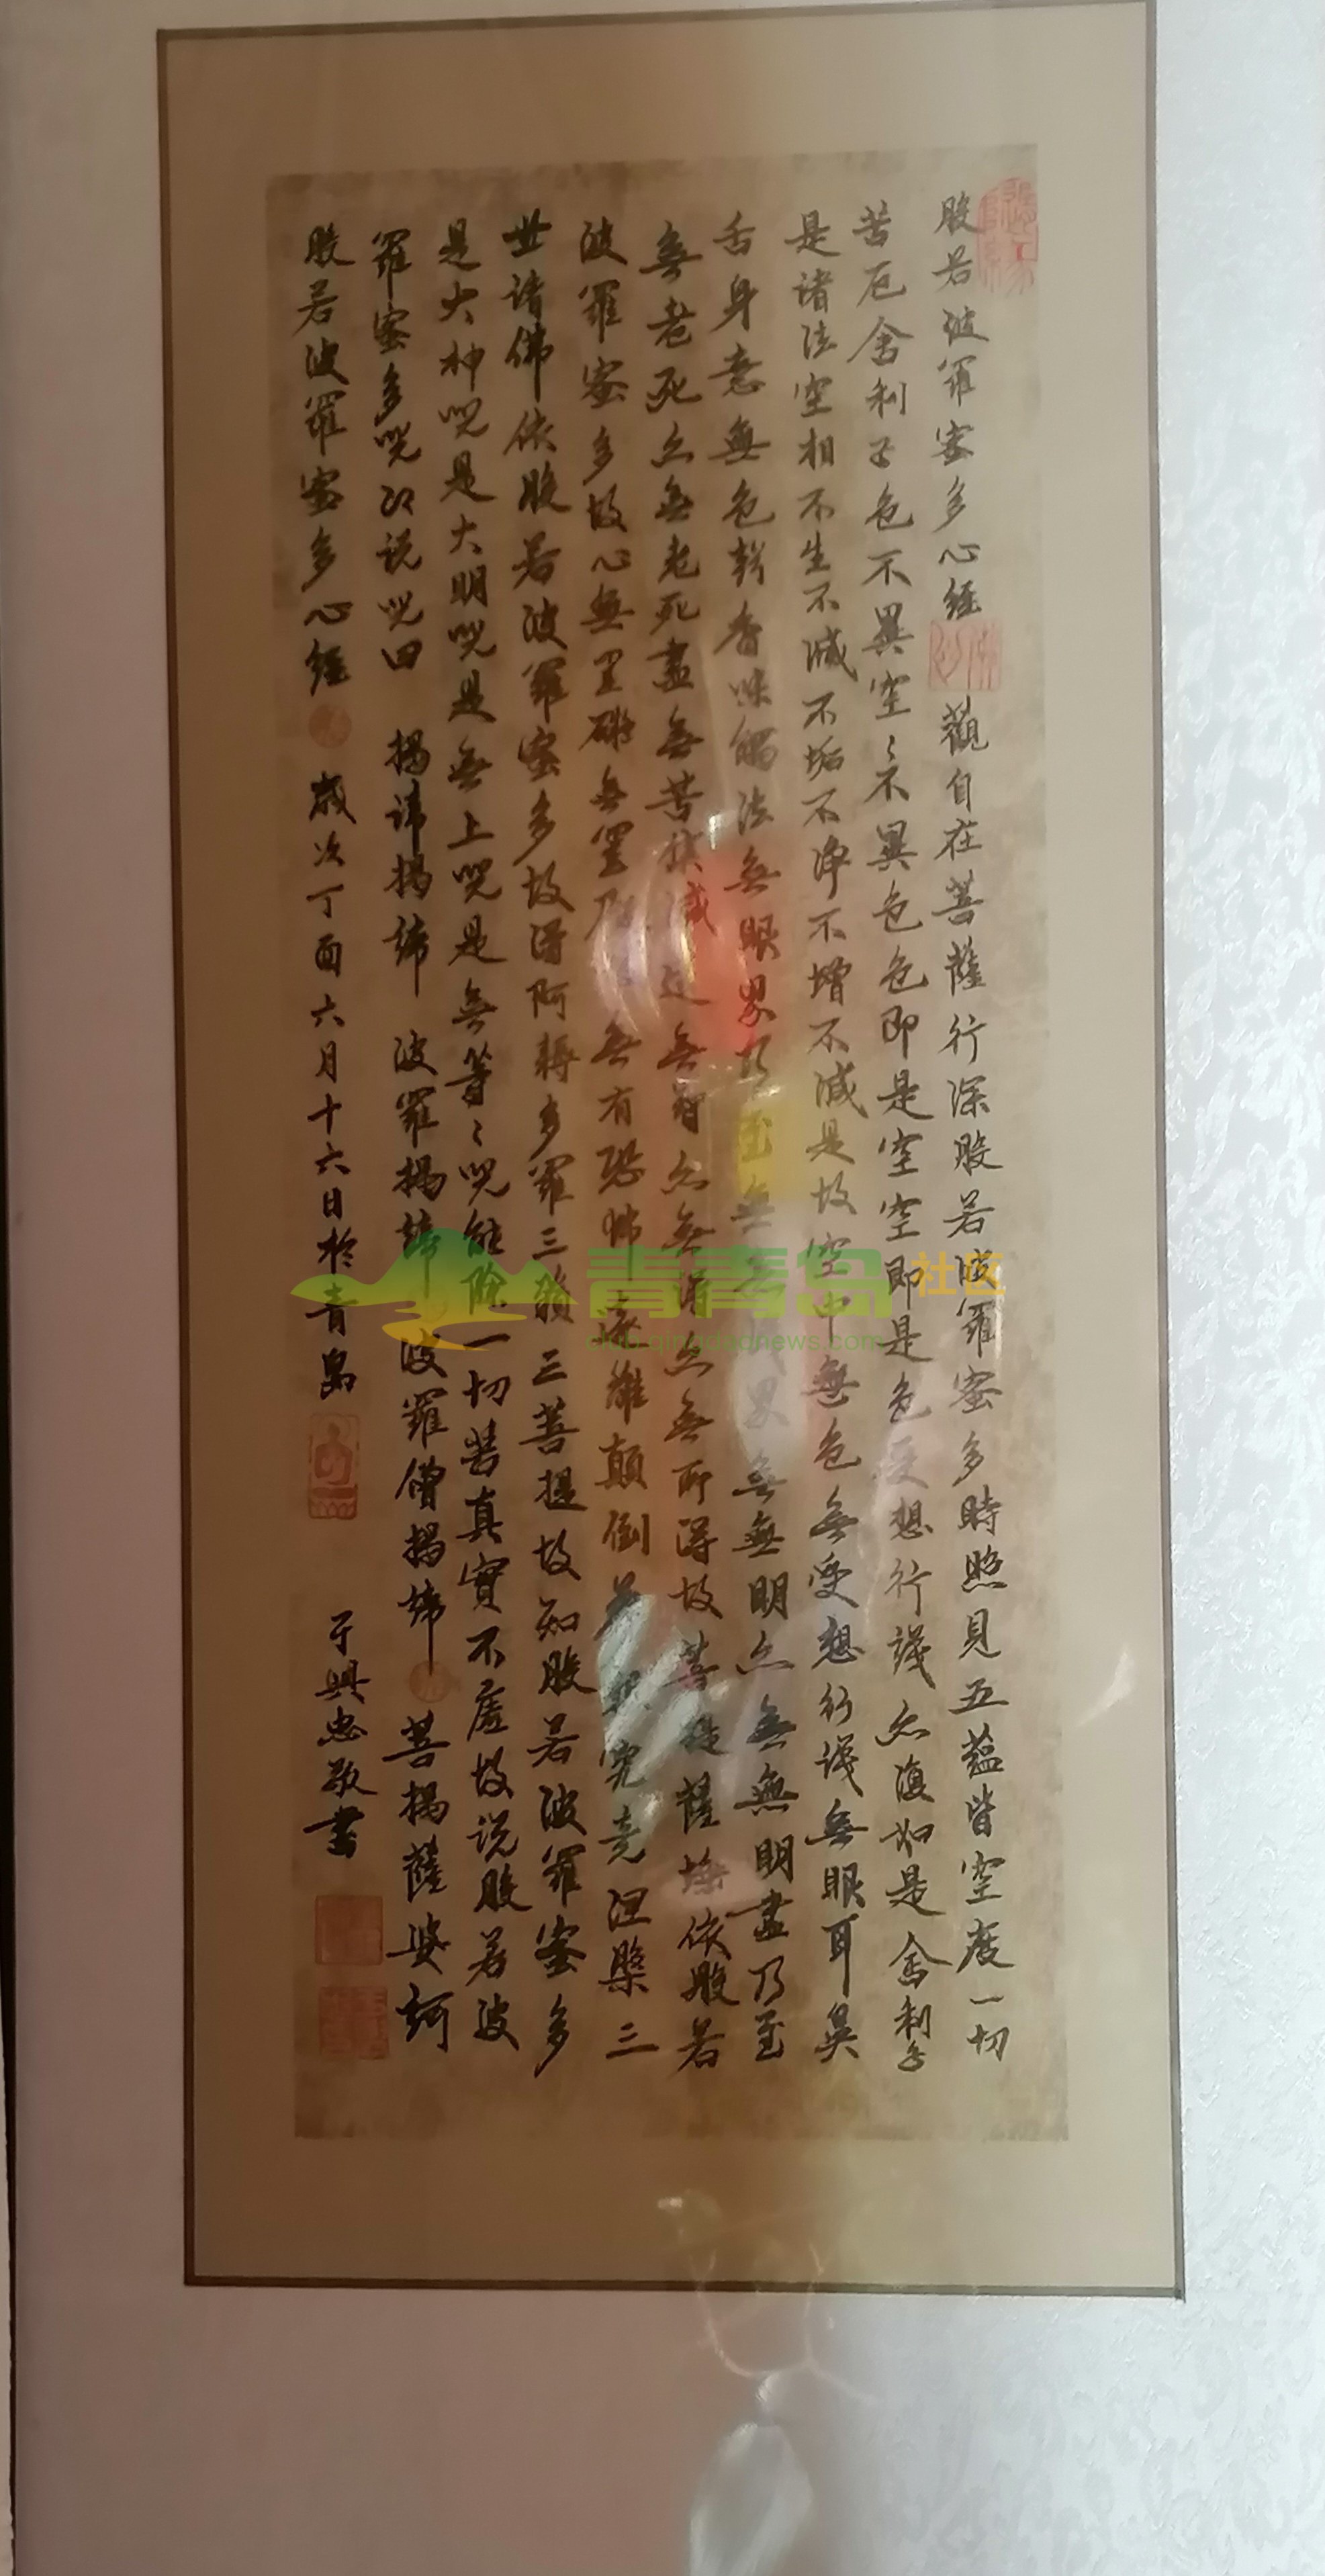 般若波羅蜜多心經 觀自在菩薩行深般若波羅蜜多時照見五蘊皆空度一切
苦厄舍利子色不異空〻不異色色即是空空即是色受想行識亦復如是舍利子
是諸法空相不生不滅不垢不淨不增不減是故空中無色無受想行識無眼耳鼻
舌身意無色聲香味觸法無眼界乃至無意識界無無明亦無無明盡乃至
無老死亦無老死盡無苦集滅道無智亦無得以無所得故菩提薩埵依般若
波羅蜜多故心無罣礙無罣 無有恐怖遠離顛倒夢想究竟涅槃三
世諸佛依般若波羅蜜多故得阿耨多羅三藐三菩提故知般若波羅蜜多
是大神咒是大明咒是無上咒是無等〻咒能除一切苦真實不虛故說般若波
羅蜜多咒即說咒曰 揭諦揭諦 波羅揭諦 波羅僧揭諦 菩提薩婆訶
般若波羅蜜多心經 歲次丁酉六月十六日於青島 于興忠敬書
青青岛社区
club.qingdaonews.com